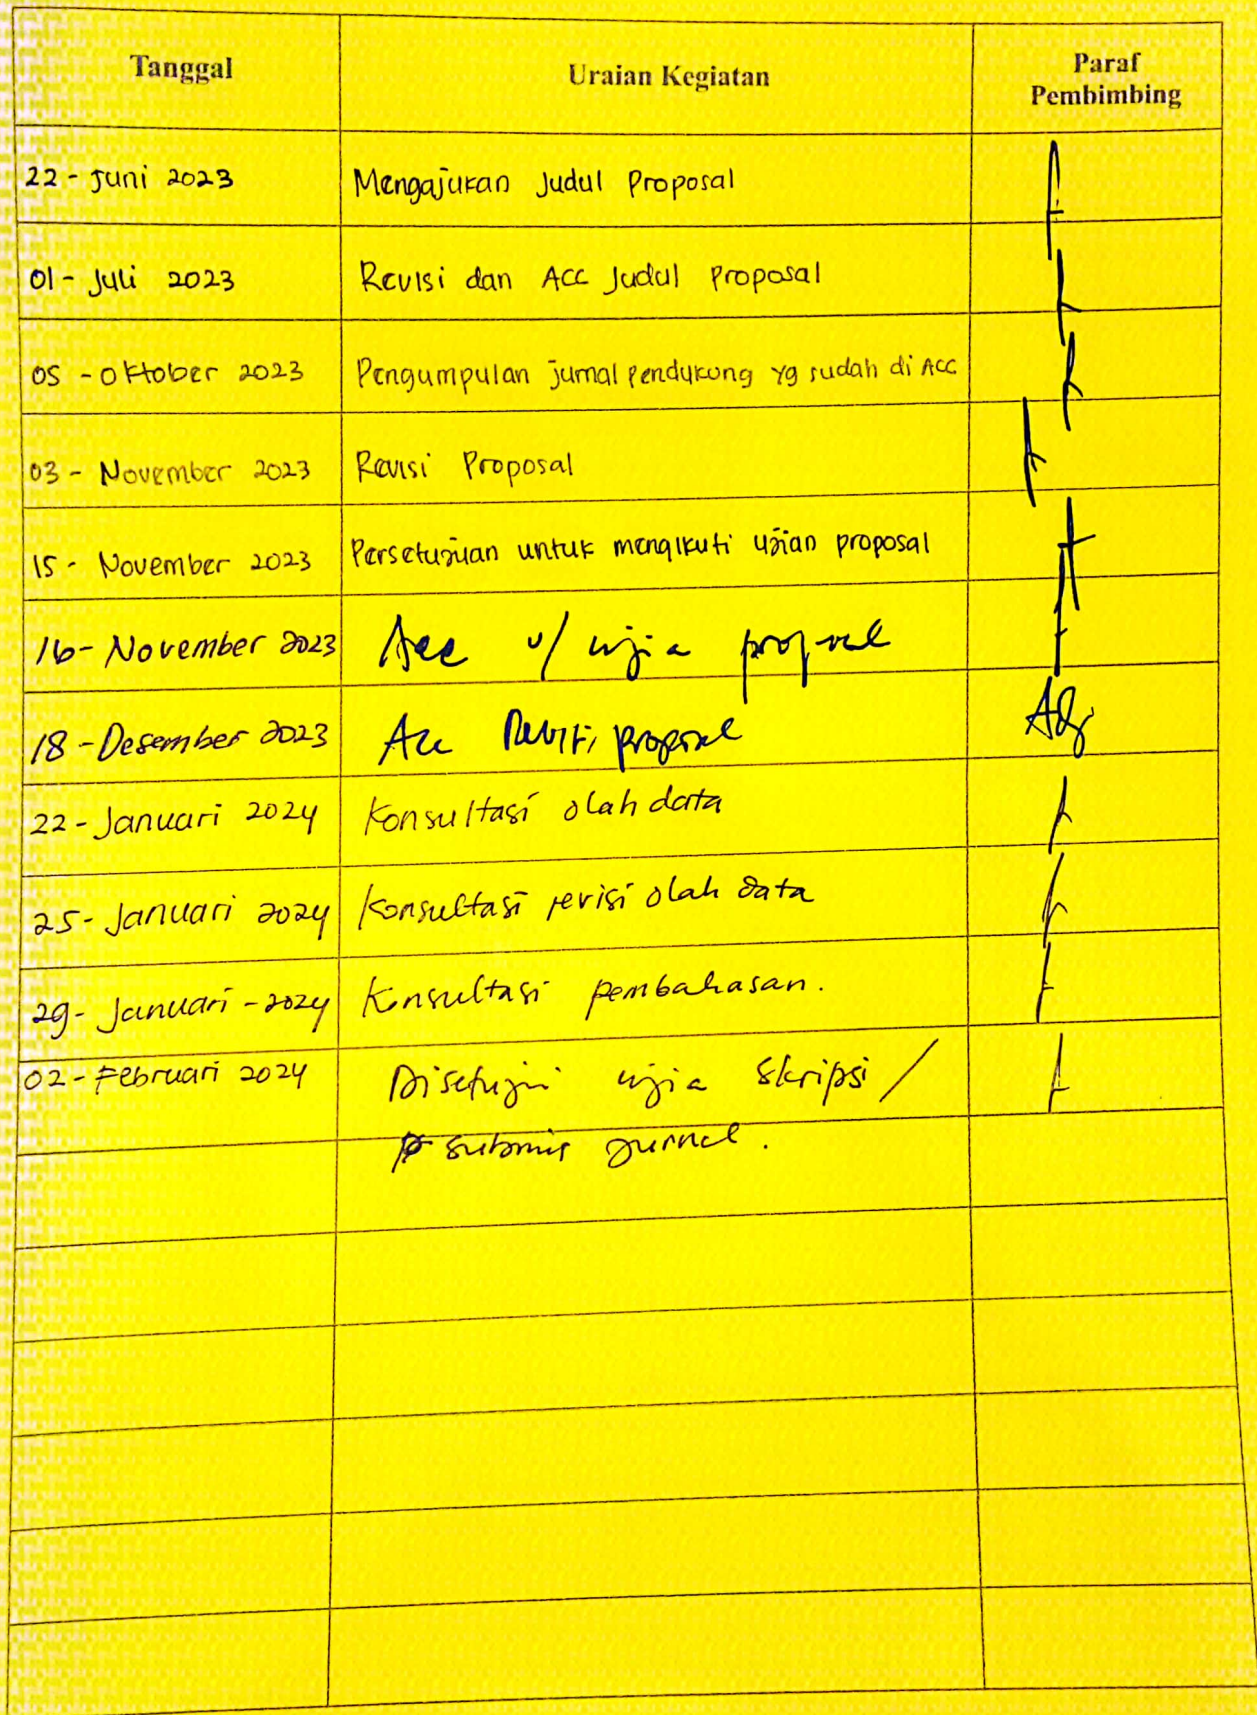 Tanggal Uraian Kegiatan Paraf
Pembimbing
22 - Juni 2023 Mengajukan Judul Proposal
01 - Juli 2023 Revisi dan Acc Judul Proposal
05 - Oktober 2023 Pengumpulan jurnal pendukung yg sudah di Acc
03 - November 2023 Revisi Proposal
15 - November 2023 Persetujuan untuk mengikuti ujian proposal
16 - November 2023 Acc u/ ujia proposal
18 - Desember 2023 Acc Revisi proposal
22 - Januari 2024 Konsultasi olah data
25 - Januari 2024 Konsultasi revisi olah data
29 - Januari - 2024 Konsultasi pembahasan.
02 - Februari 2024 Disetujui ujia skripsi /
submis jurnal.